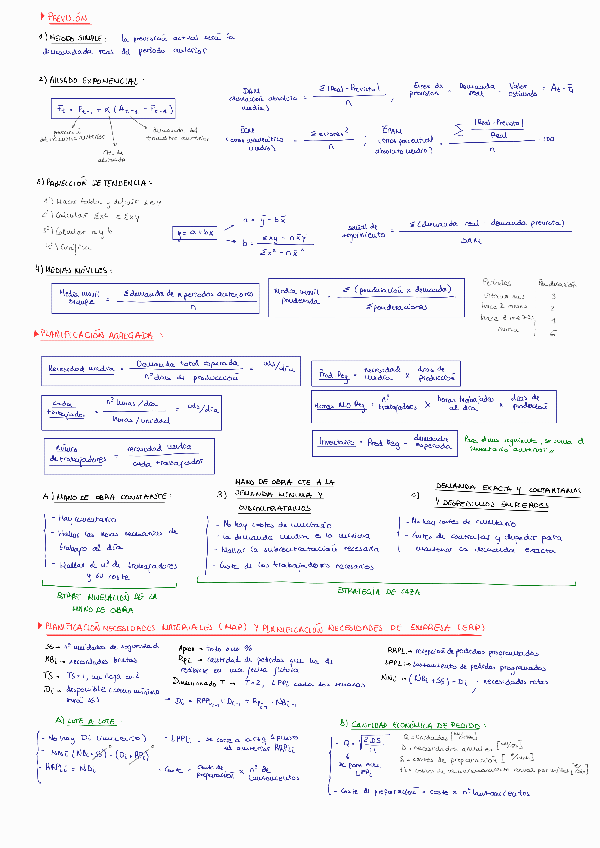 ▶ PREVISIÓN
1) MÉTODO SIMPLE: la previsión actual será la
demandada real del periodo anterior
2) ALISADO EXPONENCIAL:
Ft = Ft-1 + α (At-1 - Ft-1)
demanda del
DAM
(desviación absoluta media) = Σ |Real - Prevista| / n
Error de previsión = Demanda real - Valor estimado = At - Ft
ECM
(error cuadrático medio) = Σ errores² / n
EPAM
(error porcentual absoluto medio) = Σ |Real - Prevista| / Real / n · 100
3) PROYECCIÓN DE TENDENCIA:
1º) Hacer tabla y definir x e y
2º) Calcular Σx² e Σxy
3º) Calcular a y b
4º) Gráfica
y = a + bx
a = ȳ - bx̄
b = Σxy - nx̄ȳ / Σx² - nx̄²
señal de seguimiento = Σ (demanda real - demanda prevista) / DAM
4) MEDIAS MÓVILES:
Media móvil simple = Σ demanda de n periodos anteriores / n
Media móvil ponderada = Σ (ponderación x demanda) / Σ ponderaciones
Periodos Ponderación
último mes 3
hace 2 meses 2
hace 3 meses 1
suma 6
▶ PLANIFICACIÓN AGREGADA:
Necesidad media = Demanda total esperada / nº días de producción = uds/día
Prod Reg = necesidad media x días de producción
cada trabajador = nº horas/día / horas/unidad = uds/día
Horas MO Reg = nº trabajadores x horas trabajador al día x días de producción
Número de trabajadores = necesidad media / cada trabajador
Inventario = Prod Reg - demanda esperada
Para el mes siguiente, se suma el inventario anterior
A) MANO DE OBRA CONSTANTE:
- Hay inventario
- Hallar las horas necesarias de
trabajo al día
- Hallar el nº de trabajadores
y su coste
ESTRAT NIVELACIÓN DE LA
MANO DE OBRA
B) MANO DE OBRA CTE A LA
DEMANDA MÍNIMA Y
SUBCONTRATAMOS
- No hay costes de inventario
- La demanda media es la mínima
- Hallar la subcontratación necesaria
- Coste de los trabajadores necesarios
C) DEMANDA EXACTA Y CONTRATAMOS
Y DESPEDIMOS EMPLEADOS
- No hay costes de inventario
- Costes de contratar y despedir para
mantener la demanda exacta
ESTRATEGIA DE CAZA
▶ PLANIFICACIÓN NECESIDADES MATERIALES (MRP) Y PLANIFICACIÓN NECESIDADES DE EMPRESA (ERP)
SS → nº unidades de seguridad
NBi → necesidades brutas
TS → TS=1, un hoja
Di → disponible (como mínimo
será SS)
RPi → cantidad de pedidos que ha de
recibirse en una fecha futura
→ Di = RPPi-1 + Di-1 + RPi-1 - NBi-1
RPPLi → recepción de pedidos programados
LPPLi → lanzamiento de pedidos programados
NNi → (NBi + SS) - Di → necesidades netas
A) LOTE A LOTE
- No hay Di (inventario)
- NNi (NBi + SS) - (Di + RPi)
- RPPLi = NDi
- Coste = coste de preparación x nº de lanzamientos
B) CANTIDAD ECONÓMICA DE PEDIDO:
Q → unidades
D → necesidades anuales
S → costes de preparación
- Coste de preparación = coste x nº lanzamientos